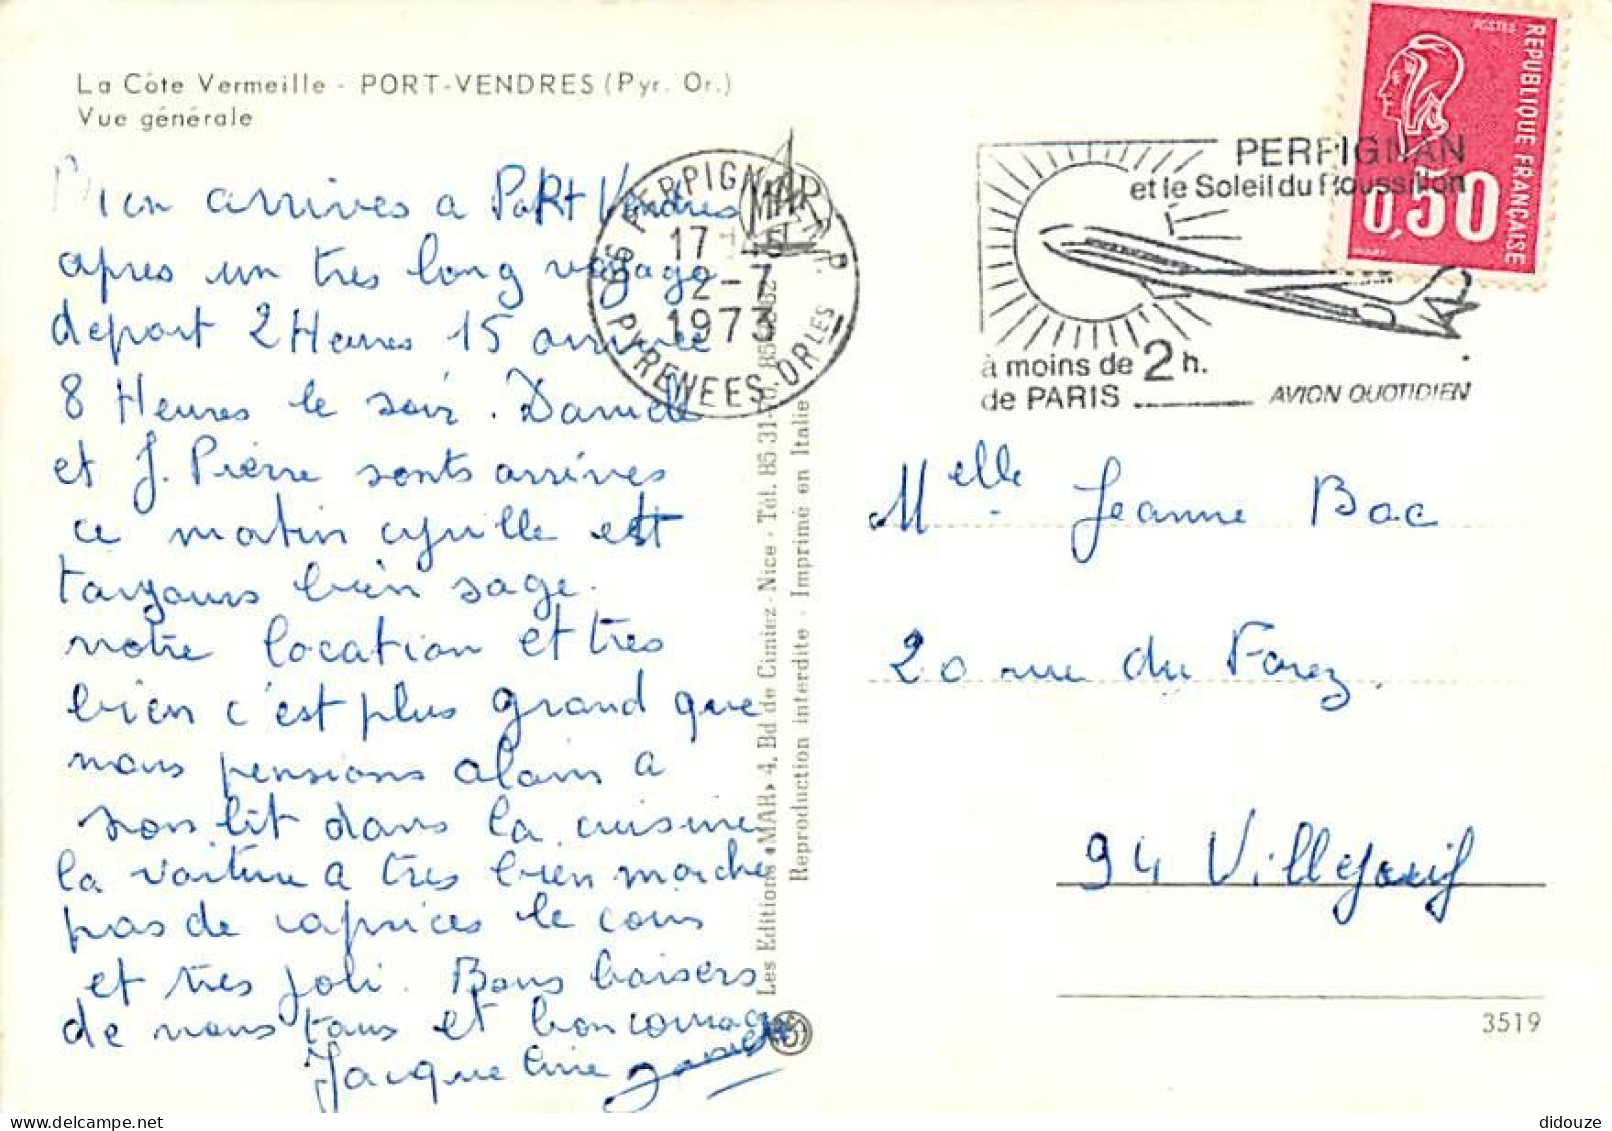 La Côte Vermeille - PORT-VENDRES (Pyr. Or.)
Vue générale
Bien arrives a Port Vendres
apres un tres long voyage
depart 2 Heures 15 arrivée
8 Heures le soir. Danielle
et J. Pierre sonts arrives
ce matin cyrille est
toujours bien sage.
notre location et tres
bien c'est plus grand que
nous pensions alain a
son lit dans la cuisine
la voiture a tres bien marche
pas de caprices le coin
et tres joli. Bons baisers
de nous tous et bon courage
Jacqueline
Les Editions «MAR» 4, Bd de Cimiez - Nice - Tél. 85-31-
Reproduction interdite - Imprimé en Italie
MAR
66 PERPIGNAN R.P.
17 H 45
2-7
1973
PYRENEES ORLES
PERPIGNAN
et le Soleil du Roussillon
à moins de 2 h.
de PARIS
AVION QUOTIDIEN
POSTES
REPUBLIQUE FRANÇAISE
0,50
Melle Jeanne Bac
20 rue du Forez.
94 Villejuif
3519
didouze